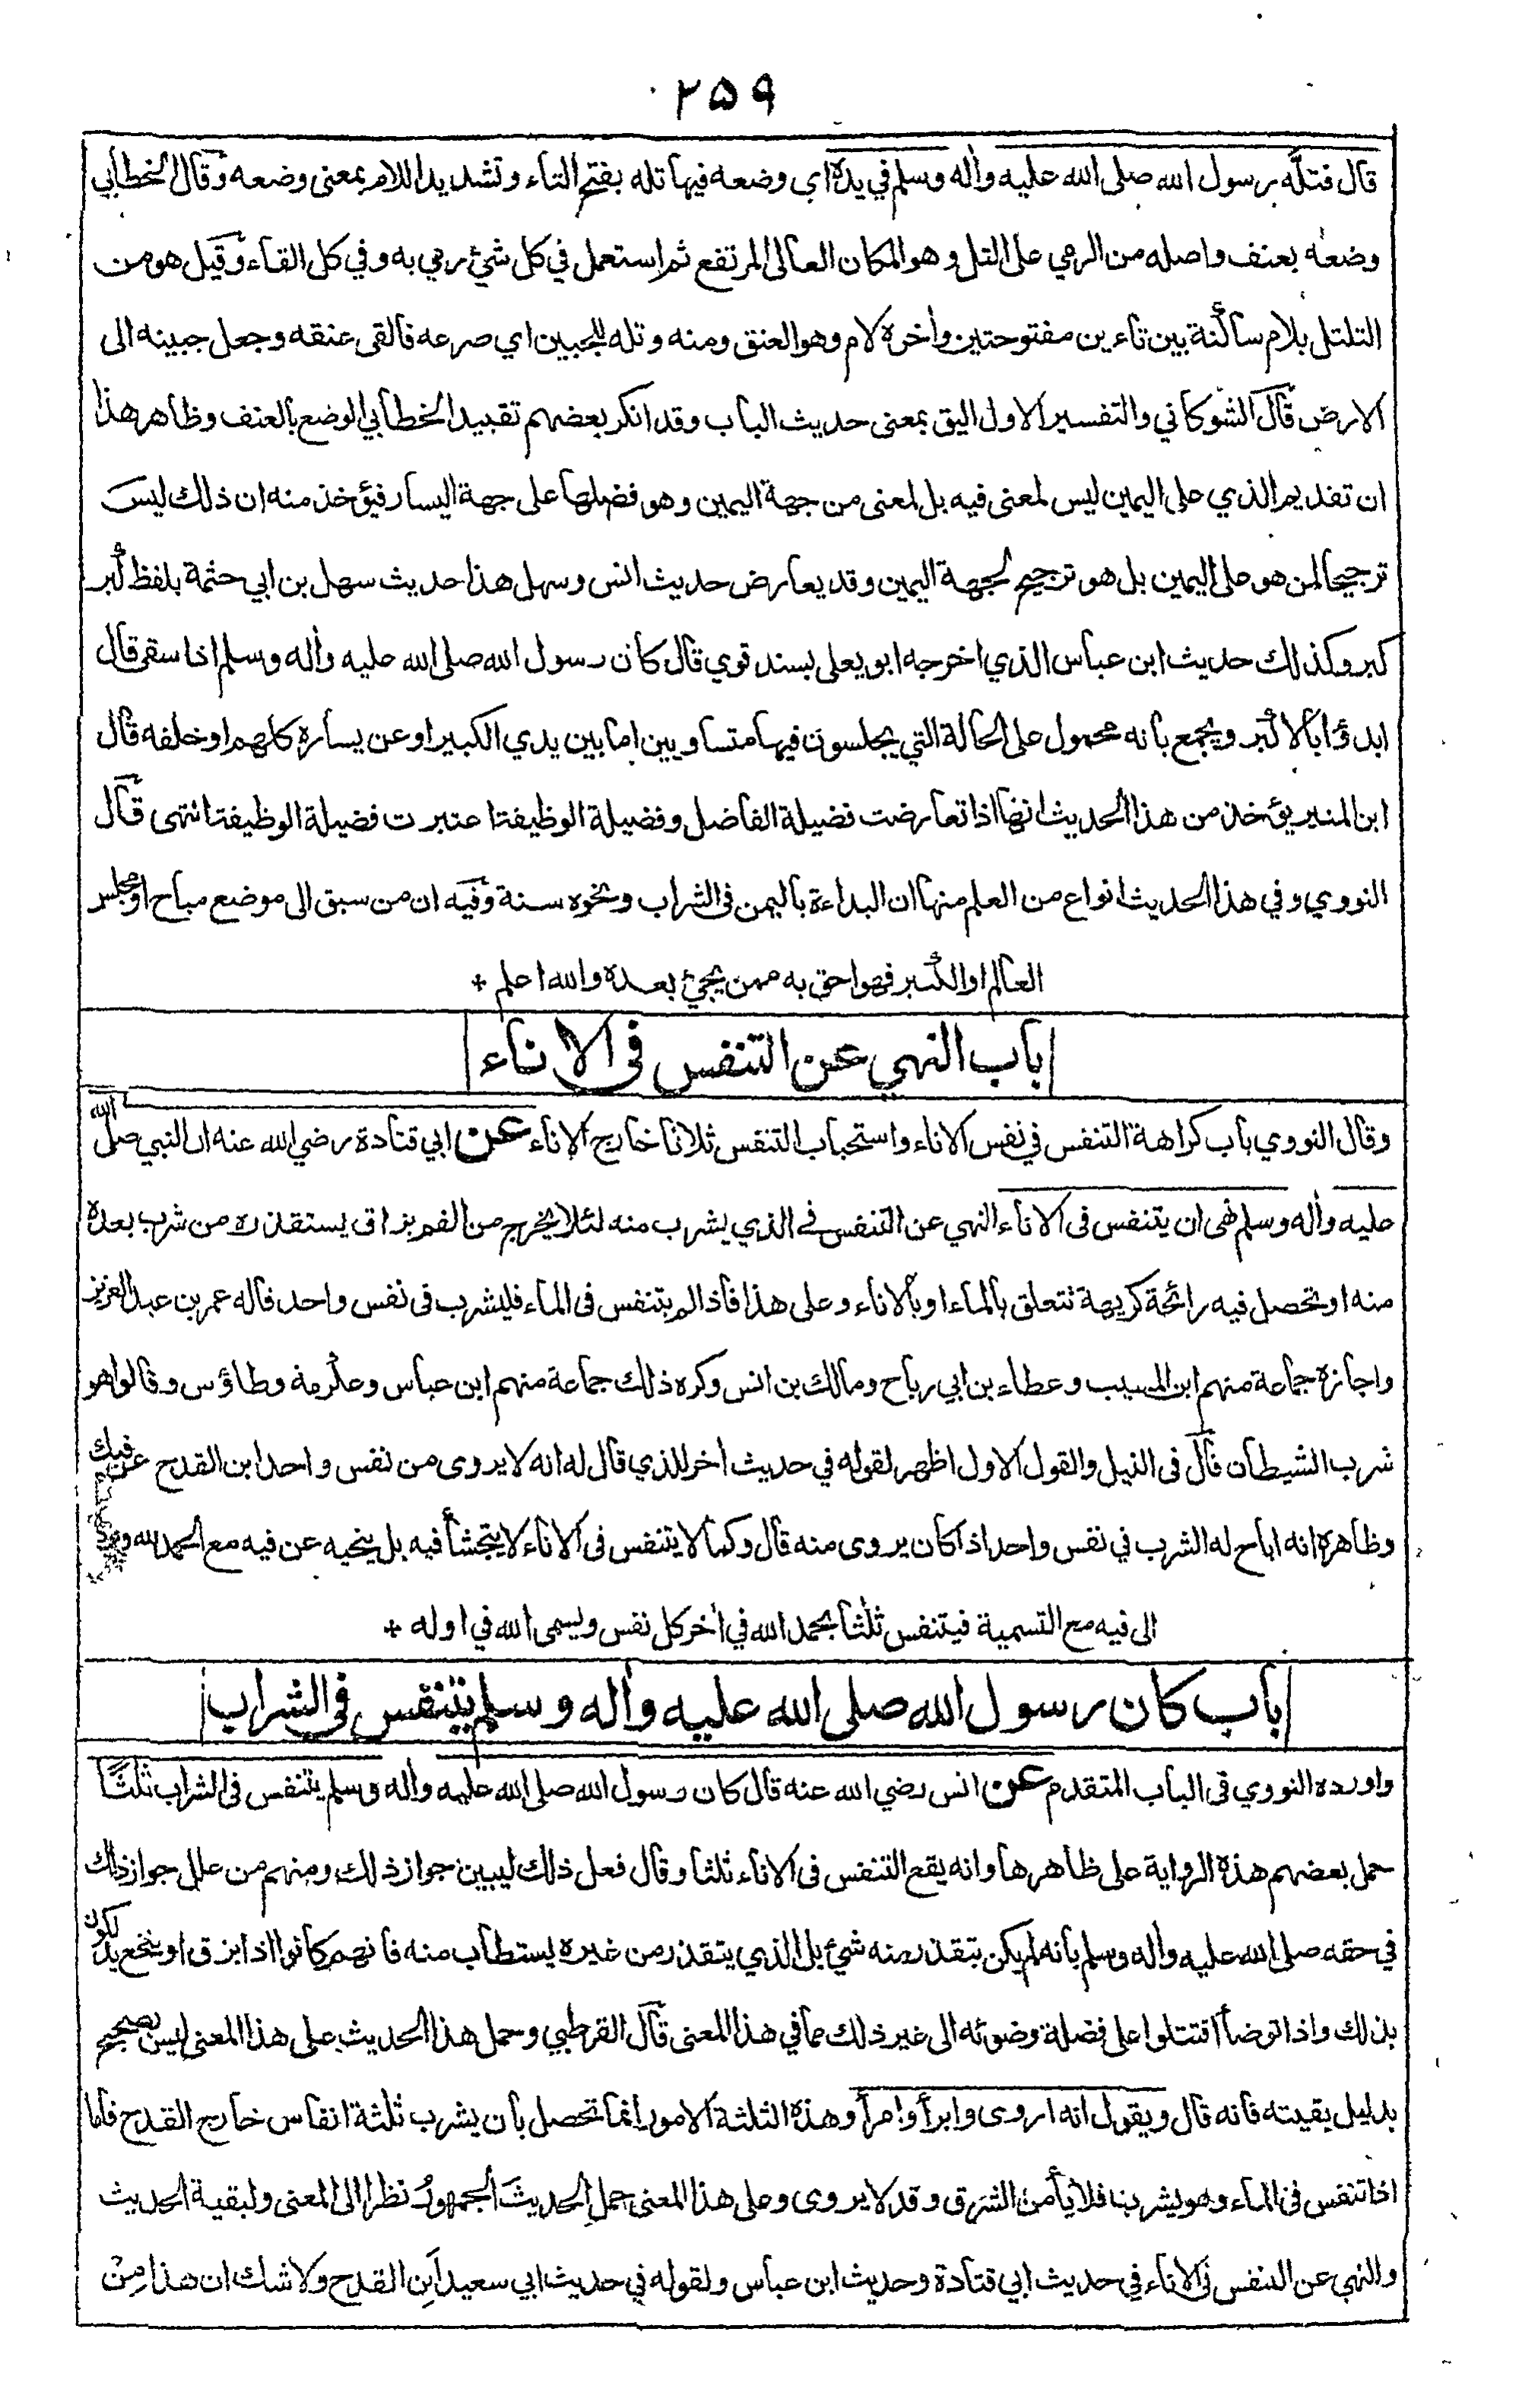 ٢٥٩
قال فتلّه رسول الله صلى الله عليه وأله وسلم في يده اي وضعه فيها تله بفتح التاء وتشديد اللام بمعنى وضعه وقال الخطابي
وضعه بعنف واصله من الرمي على التل وهو المكان العالى المرتفع ثم استعمل في كل شئ رمي به وفي كل القاء وقيل هو من
التلتل بلام ساكنة بين تاءين مفتوحتين وأخره لام وهو العنق ومنه وتله للجبين اي صرعه فالقى عنقه وجعل جبينه الى
الارض قال الشوكاني والتفسير الاول اليق بمعنى حديث الباب وقد انكر بعضهم تقييد الخطابي الوضع بالعنف وظاهر هذا
ان تقديم الذي على اليمين ليس لمعنى فيه بل لمعنى من جهة اليمين وهو فضلها على جهة اليسار فيؤخذ منه ان ذلك ليس
ترجيحا لمن هو على اليمين بل هو ترجيح لجهة اليمين وقد يعارض حديث انس وسهل هذا حديث سهل بن ابي حثمة بلفظ كبر
كبر وكذلك حديث ابن عباس الذي اخرجه ابو يعلى بسند قوي قال كان رسول الله صلى الله عليه وأله وسلم اذا سقى قال
ابدؤا بالاكبر ويجمع بانه محمول على الحالة التي يجلسون فيها متساويين اما بين يدي الكبير او عن يساره كلهم او خلفه قال
ابن المنير يؤخذ من هذا الحديث انها اذا تعارضت فضيلة الفاضل وفضيلة الوظيفة اعتبرت فضيلة الوظيفة انتهى قال
النووي وفي هذا الحديث انواع من العلم منها ان البداءة باليمن فى الشراب ونحوه سنة وفيه ان من سبق الى موضع مباح او مجلس
العالم او الكبير فهو احق به ممن يجئ بعده والله اعلم *
باب النهي عن التنفس فى الاناء
وقال النووي باب كراهة التنفس في نفس الاناء واستحباب التنفس ثلاثا خارج الاناء عن ابي قتادة رضي الله عنه ان النبي صلى الله
عليه وأله وسلم نهى ان يتنفس فى الاناء النهي عن التنفس في الذي يشرب منه لئلا يخرج من الفم بزاق يستقذره من شرب بعده
منه او تحصل فيه رائحة كريهة تتعلق بالماء او بالاناء وعلى هذا فاذا لم يتنفس فى الماء فليشرب فى نفس واحد قاله عمر بن عبد العزيز
واجازه جماعة منهم ابن المسيب وعطاء بن ابي رباح ومالك بن انس وكره ذلك جماعة منهم ابن عباس وعكرمة وطاؤس وقالوا هو
شرب الشيطان قال فى النيل والقول الاول اظهر لقوله في حديث أخر للذي قال له انه لا يروى من نفس واحد ابن القدح عن فيك
وظاهره انه اباح له الشرب في نفس واحد اذا كان يروى منه قال وكما لا يتنفس فى الاناء لا يتجشأ فيه بل ينحيه عن فيه مع الحمد لله ويرده
الى فيه مع التسمية فيتنفس ثلثا يحمد الله في أخر كل نفس ويسمى الله في اوله *
باب كان رسول الله صلى الله عليه وأله وسلم يتنفس فى الشراب
واورده النووي فى الباب المتقدم عن انس رضي الله عنه قال كان رسول الله صلى الله عليه وأله وسلم يتنفس فى الشراب ثلثًا
حمل بعضهم هذه الرواية على ظاهرها وانه يقع التنفس فى الاناء ثلثا وقال فعل ذلك ليبين جواز ذلك ومنهم من علل جواز ذلك
في حقه صلى الله عليه وأله وسلم بانه لم يكن يتقذر منه شئ بل الذي يتقذر من غيره يستطاب منه فانهم كانوا اذا بزق او ينخع يدلكون
بذلك واذا توضأ اقتتلوا على فضلة وضوئه الى غير ذلك مما في هذا المعنى قال القرطبي وحمل هذا الحديث على هذا المعنى ليس بصحيح
بدليل بقيته فانه قال ويقول انه اروى وابرأ وامرأ وهذه الثلثة الامور انما تحصل بان يشرب ثلثة انفاس خارج القدح فاما
اذا تنفس فى الماء وهو يشرب فلا يأمن الشرق وقد لا يروى وعلى هذا المعنى حمل الحديثَ الجمهورُ نظرا الى المعنى ولبقية الحديث
والنهي عن التنفس فى الاناء في حديث ابي قتادة وحديث ابن عباس ولقوله في حديث ابي سعيد اَبِن القدح ولا شك ان هذا مِنْ